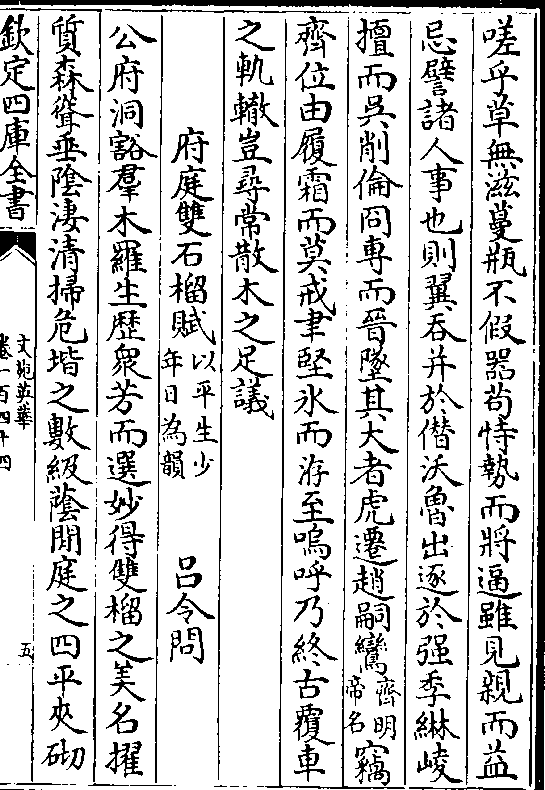 嗟乎草無滋蔓瓶不假器苟恃勢而將逼雖見親而益
忌譬諸人事也則翼吞并於僭沃魯出逐於强季綝峻
擅而吳削倫冏專而晉墜其大者虎遷趙嗣鸞齊明帝名竊
齊位由履霜而莫戒聿堅氷而洊至嗚呼乃終古覆車
之軌轍豈尋常散木之足議
府庭雙石榴賦以平生少年日為韻 呂令問
公府洞豁羣木羅生歴衆芳而選妙得雙榴之美名擢
質森聳垂陰淒清掃危堦之數級蔭閒庭之四平夾砌
欽定四庫全書
文苑英華
卷一百四十四
五